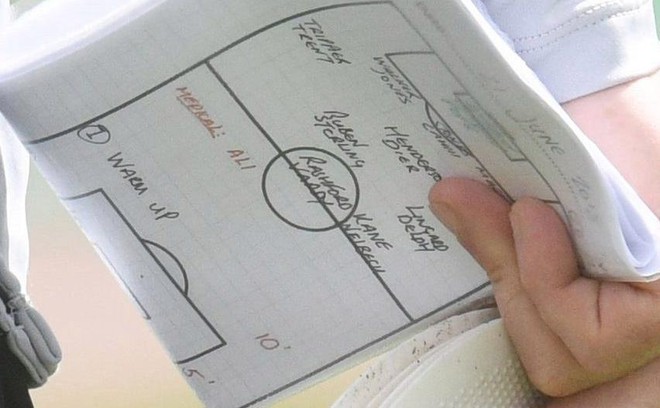 TRIPPIER
TRENT
WALKER
JONES
JUNE
MEDICAL: ALI
RUBEN
STERLING
HENDERSON
DIER
① WARM UP
RASHFORD
VARDY
KANE
WELBECK
LINGARD
DELPH
10'
5'